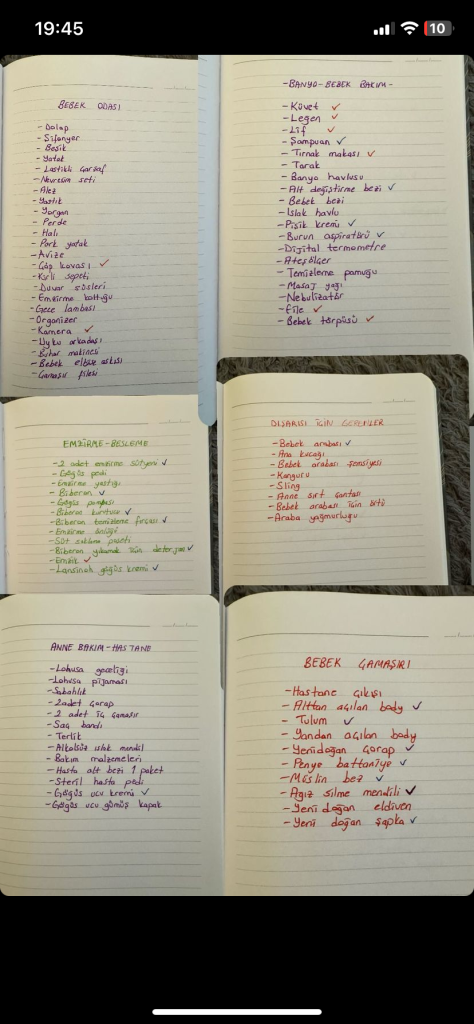 19:45
10
BEBEK ODASI
- Dolap
- Şifonyer
- Beşik
- Yatak
- Lastikli çarşaf
- Nevresim seti
- Alez
- Yastık
- Yorgan
- Perde
- Halı
- Park yatak
- Avize
- Çöp kovası ✓
- Kirli sepeti
- Duvar süsleri
- Emzirme koltuğu
- Gece lambası
- Organizer
- Kamera ✓
- Uyku arkadaşı
- Buhar makinesi
- Bebek elbise askısı
- Çamaşır filesi
-BANYO-BEBEK BAKIM-
- Küvet ✓
- Leğen ✓
- Lif ✓
- Şampuan ✓
- Tırnak makası ✓
- Tarak
- Banyo havlusu
- Alt değiştirme bezi ✓
- Bebek bezi
- Islak havlu
- Pişik kremi ✓
- Burun aspiratörü ✓
- Dijital termometre
- Ateşölçer
- Temizleme pamuğu
- Masaj yağı
- Nebulizatör
- File ✓
- Bebek törpüsü ✓
EMZİRME-BESLEME
- 2 adet emzirme sütyeni ✓
- Göğüs pedi
- Emzirme yastığı
- Biberon ✓
- Göğüs pompası
- Biberon kurutucu ✓
- Biberon temizleme fırçası ✓
- Emzirme önlüğü
- Süt saklama poşeti
- Biberon yıkamak için deterjan ✓
- Emzik ✓
- Lansinoh göğüs kremi ✓
DIŞARISI İÇİN GEREKENLER
- Bebek arabası ✓
- Ana kucağı
- Bebek arabası şemsiyesi
- Kanguru
- Sling
- Anne sırt çantası
- Bebek arabası için örtü
- Araba yağmurluğu
ANNE BAKIM-HASTANE
- Lohusa geceliği
- Lohusa pijaması
- Sabahlık
- 2 adet çorap
- 2 adet iç çamaşır
- Saç bandı
- Terlik
- Alkolsüz ıslak mendil
- Bakım malzemeleri
- Hasta alt bezi 1 paket
- Steril hasta pedi
- Göğüs ucu kremi ✓
- Göğüs ucu gümüş kapak
BEBEK ÇAMAŞIRI
- Hastane çıkışı
- Alttan açılan body ✓
- Tulum ✓
- Yandan açılan body
- Yenidoğan çorap ✓
- Penye battaniye ✓
- Müslin bez ✓
- Ağız silme mendili ✓
- Yeni doğan eldiven
- Yeni doğan şapka ✓